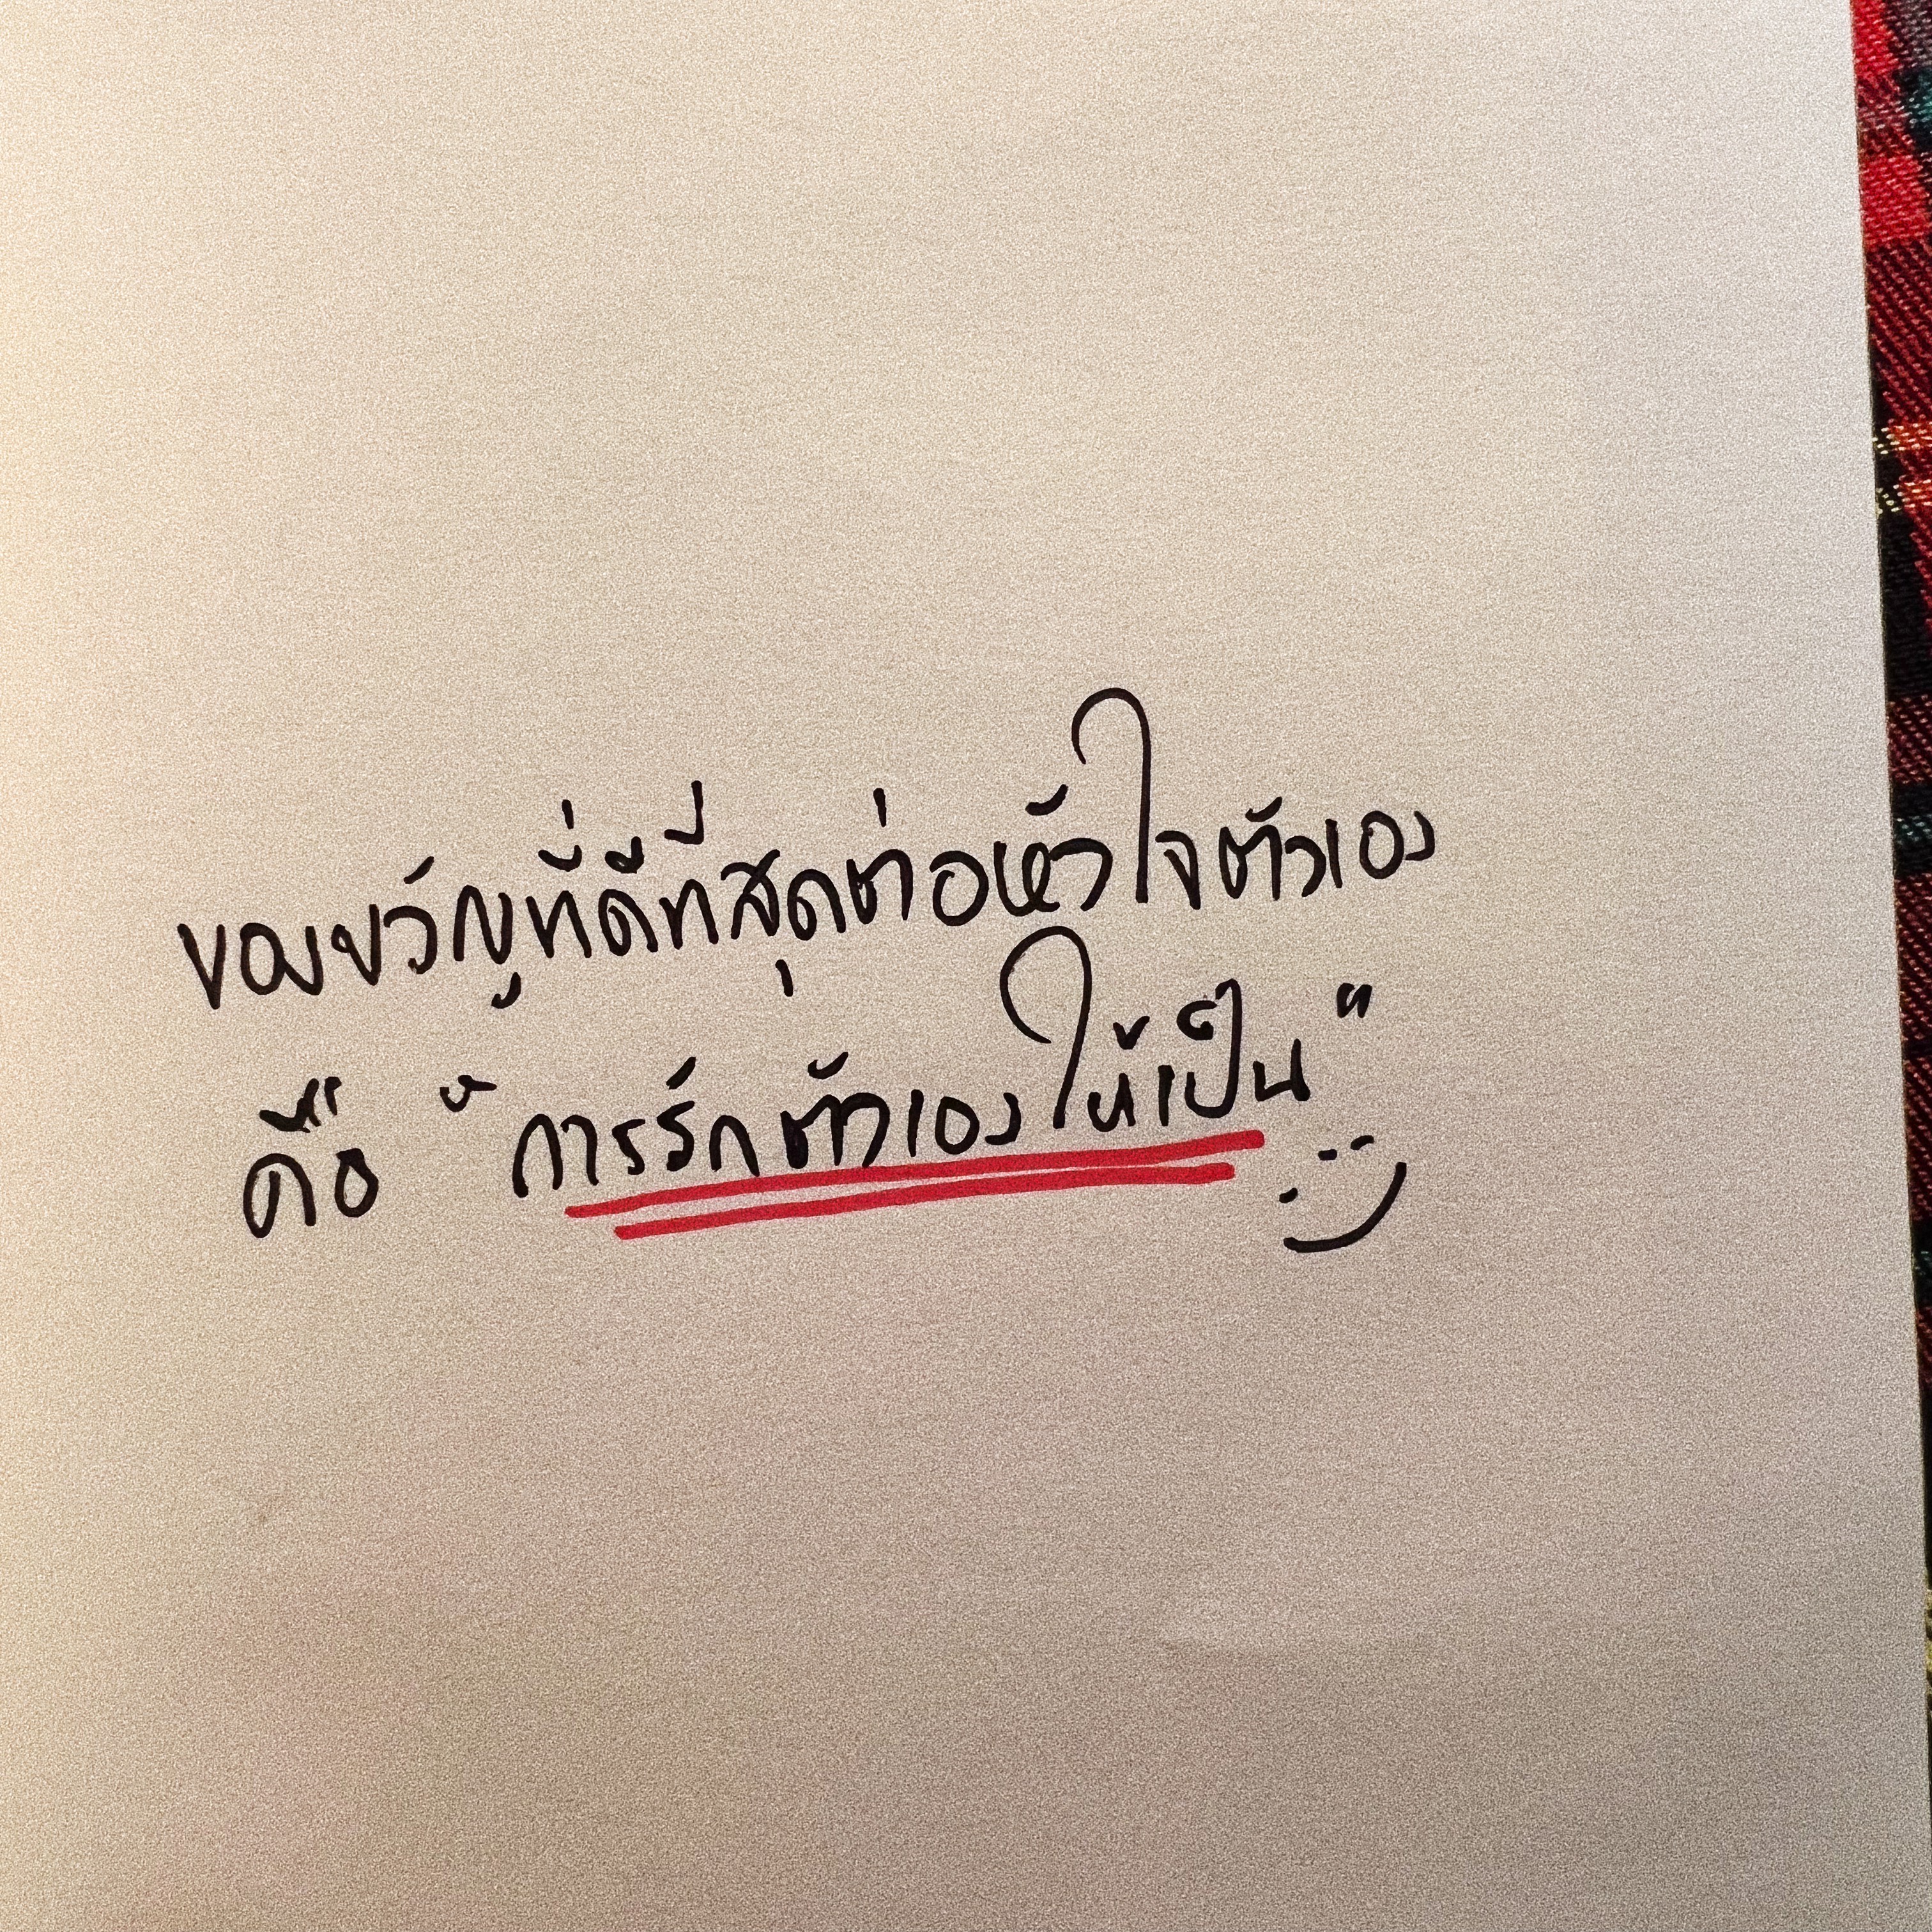 ของขวัญที่ดีที่สุดต่อหัวใจตัวเอง
คือ "การรักตัวเองให้เป็น"